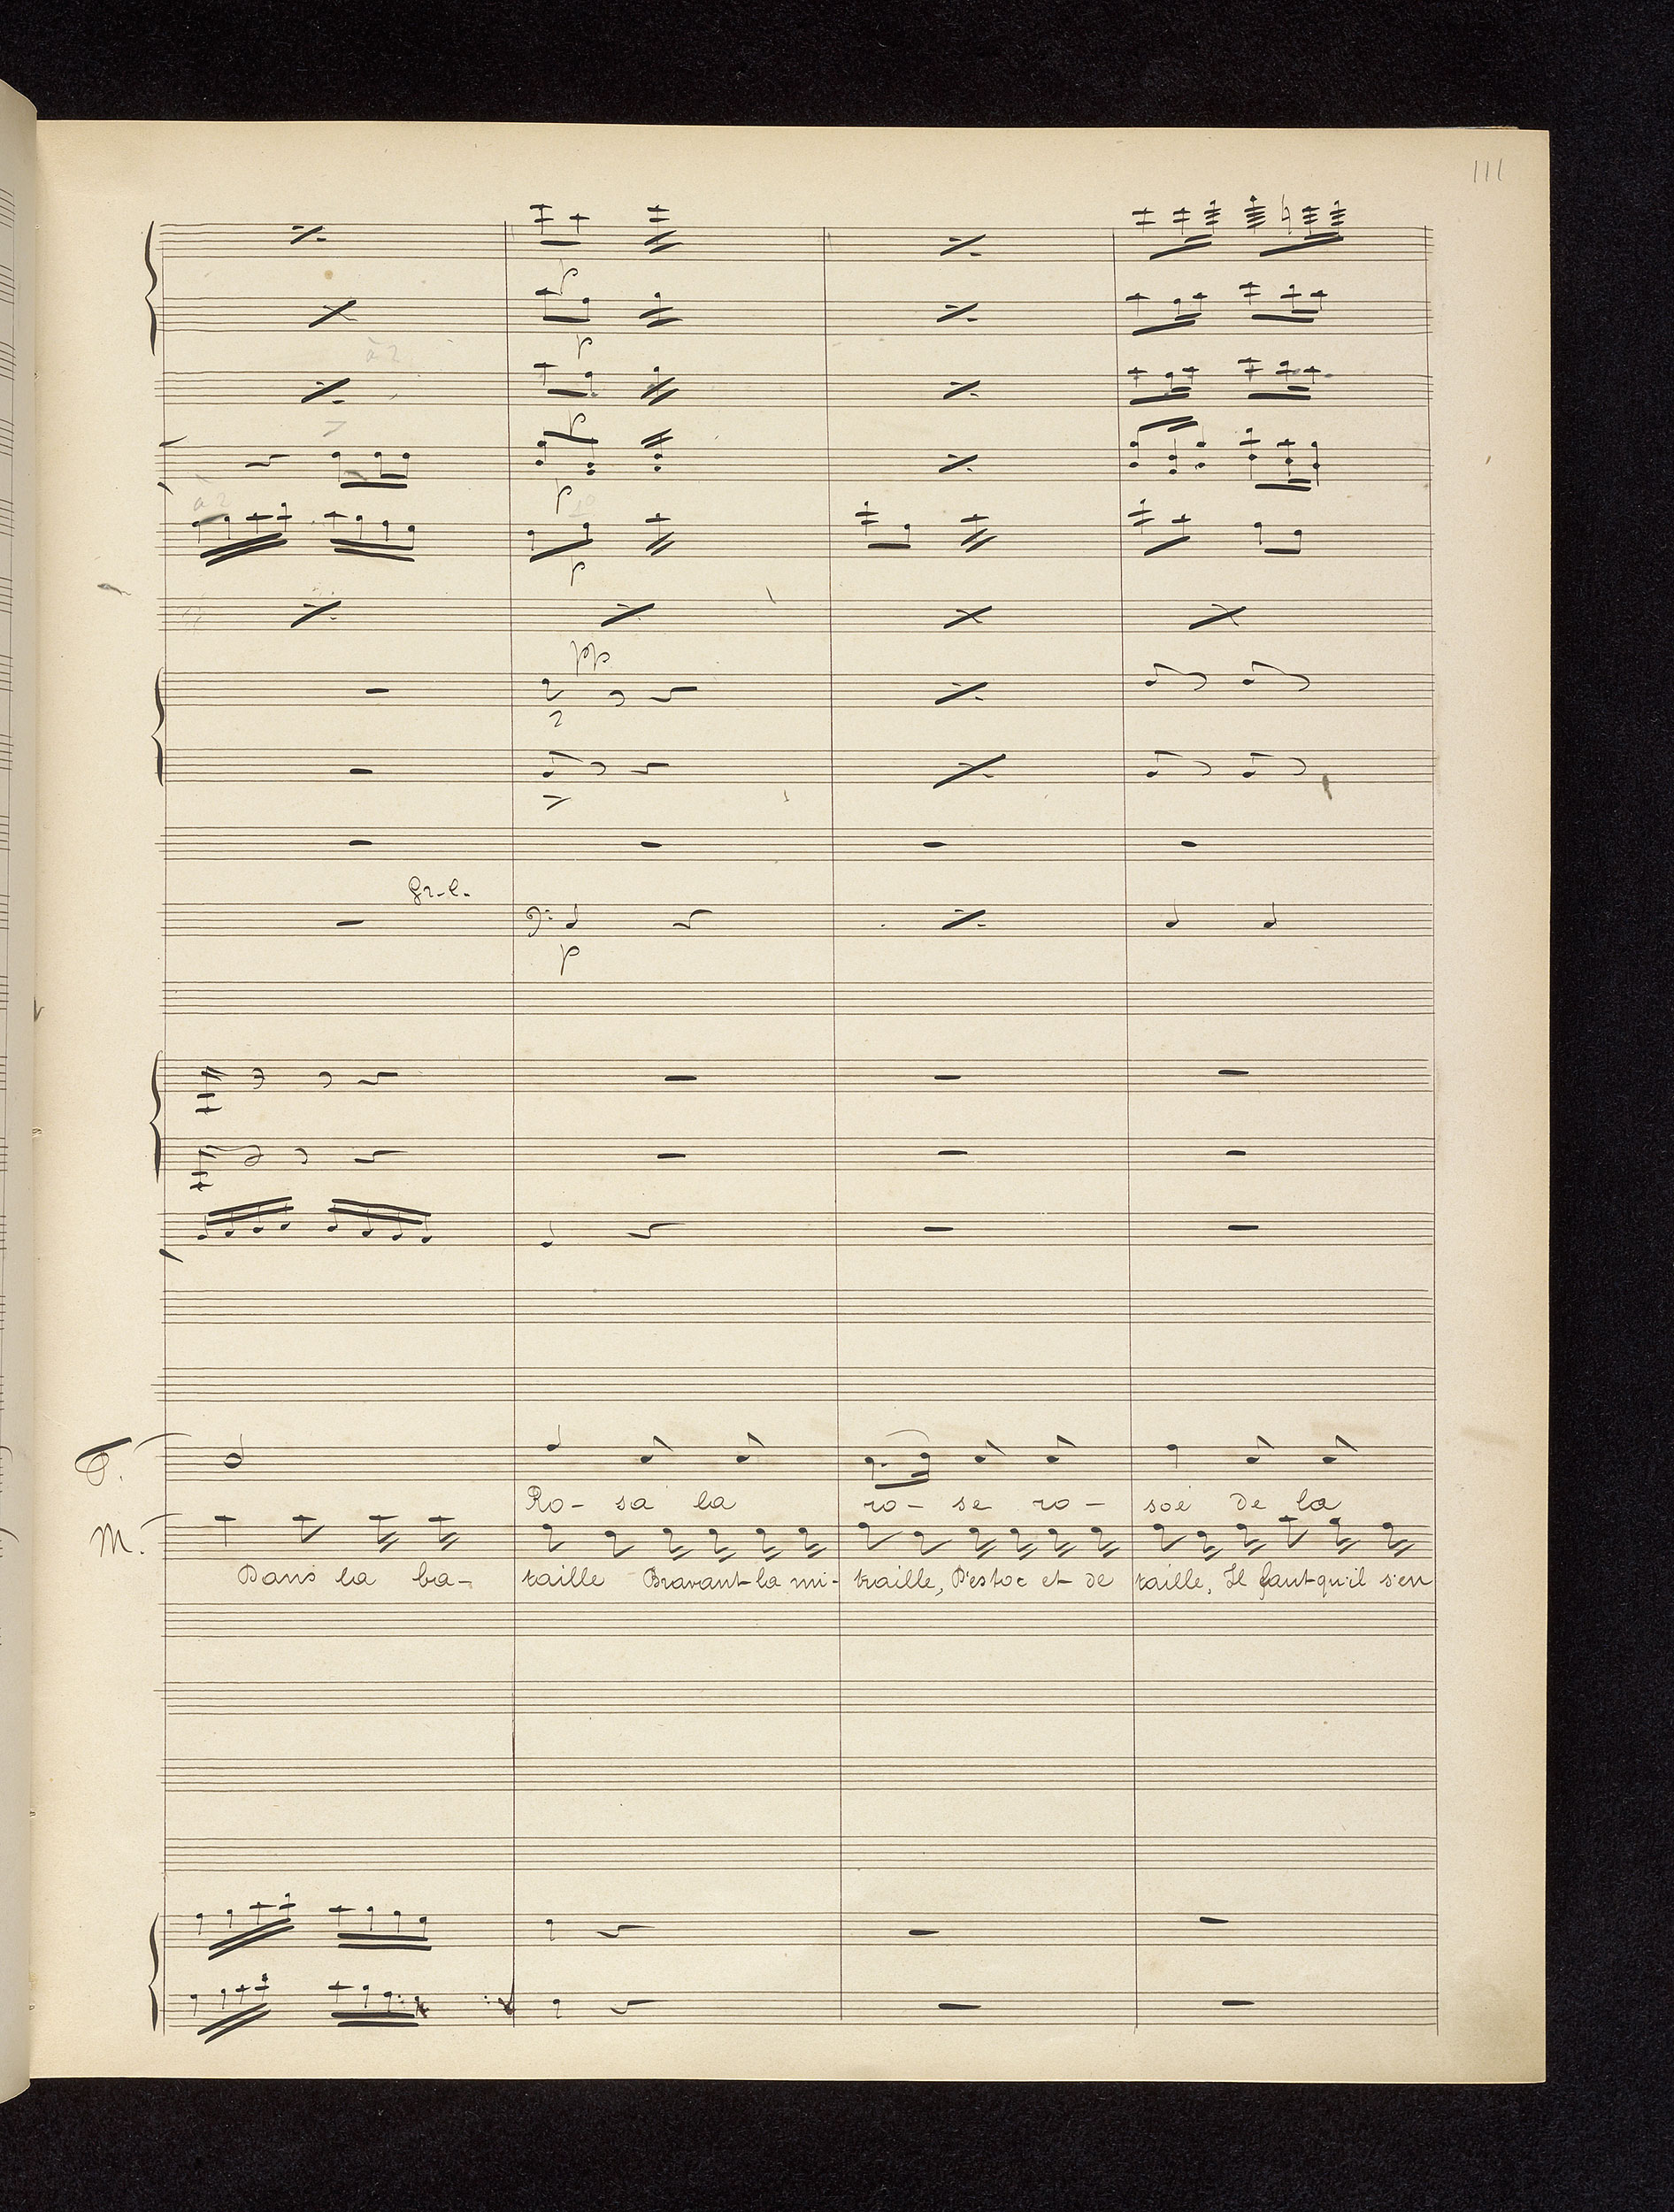 111
à 2
à 2
p
p
p
p
p
pp
Gr. C.
p
T.
Ro- sa la ro- se ro- sée de la
M.
Dans la ba- taille Bravant la mi- traille, D'estoc et de taille, Il faut qu'il s'en